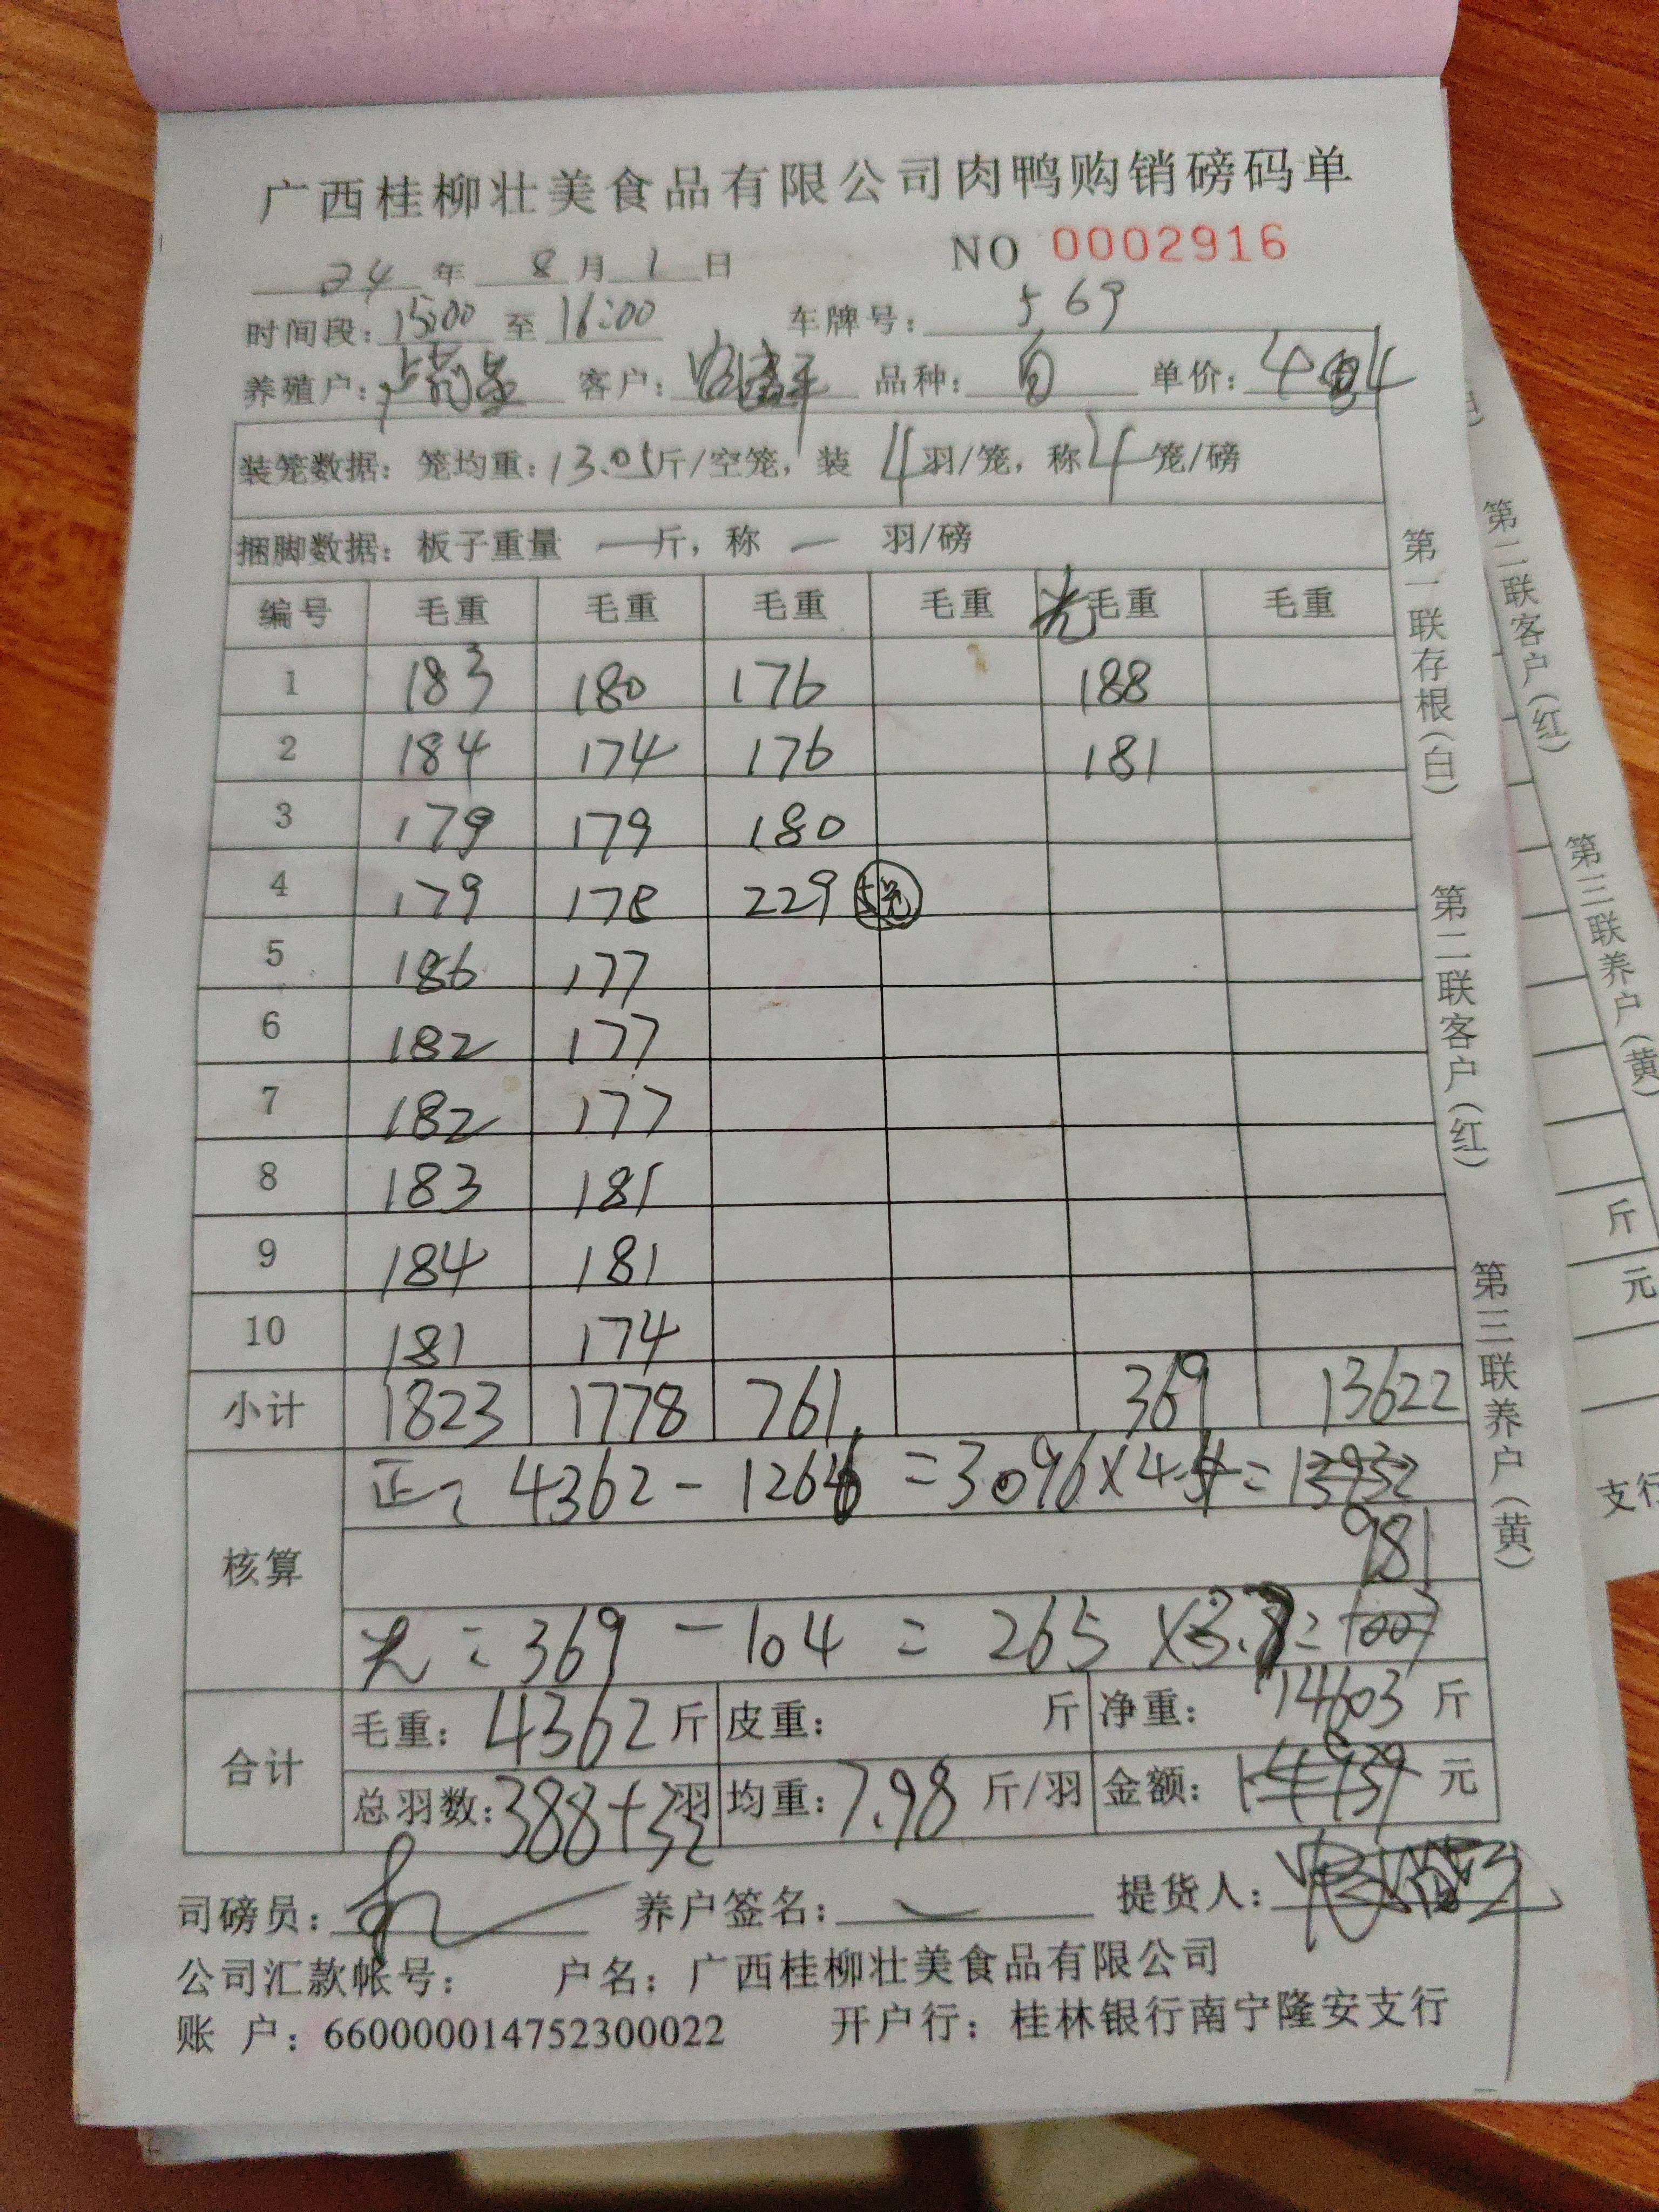 广西桂柳壮美食品有限公司肉鸭购销磅码单
NO 0002916
24 年 8 月 1 日
时间段：15:00 至 16:00 车牌号：569
养殖户： 客户： 品种：白 单价：4.4
装笼数据：笼均重：13.05斤/空笼，装 4 羽/笼，称 4 笼/磅
捆脚数据：板子重量 一 斤，称 一 羽/磅
编号 毛重 毛重 毛重 毛重 光 毛重 毛重
1 183 180 176 188
2 184 174 176 181
3 179 179 180
4 179 178 229 5笼
5 186 177
6 182 177
7 182 177
8 183 181
9 184 181
10 181 174
小计 1823 1778 761 369 13622
核算
正： 4362 - 1266 = 3096 × 4.4 = 13932
981
光： 369 - 104 = 265 × 3.7 = 1007
合计
毛重：4362 斤 皮重： 斤 净重：14603 斤
总羽数：388+32 羽 均重：7.98 斤/羽 金额：14939 元
司磅员： 养户签名： 提货人：
公司汇款帐号： 户名：广西桂柳壮美食品有限公司
账 户：660000014752300022 开户行：桂林银行南宁隆安支行
第一联存根（白） 第二联客户（红） 第三联养户（黄）
第二联客户（红） 第三联养户（黄）
斤
元
支行